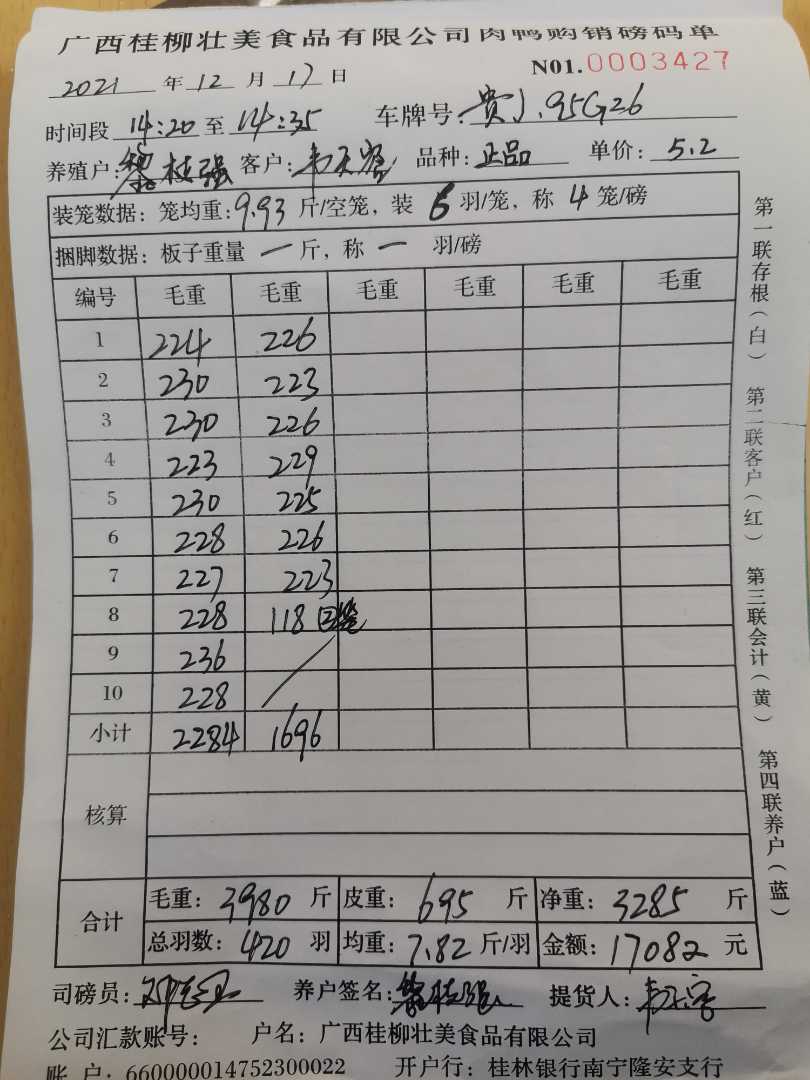 广西桂柳壮美食品有限公司肉鸭购销磅码单
2021 年 12 月 17 日 N01.0003427
时间段 14:20 至 14:35 车牌号: 贵J.95G26
养殖户: 黎桂强 客户: 品种: 正品 单价: 5.2
装笼数据: 笼均重: 9.93 斤/空笼, 装 6 羽/笼, 称 4 笼/磅
捆脚数据: 板子重量 一 斤, 称 一 羽/磅
编号 毛重 毛重 毛重 毛重 毛重 毛重
1 224 226
2 230 223
3 230 226
4 223 229
5 230 225
6 228 226
7 227 223
8 228 118 2笼
9 236
10 228
小计 2284 1696
核算
合计 毛重: 3980 斤 皮重: 695 斤 净重: 3285 斤
总羽数: 420 羽 均重: 7.82 斤/羽 金额: 17082 元
司磅员: 养户签名: 黎桂强 提货人:
公司汇款账号: 户名: 广西桂柳壮美食品有限公司
账 户: 660000014752300022 开户行: 桂林银行南宁隆安支行
第一联存根(白) 第二联客户(红) 第三联会计(黄) 第四联养户(蓝)